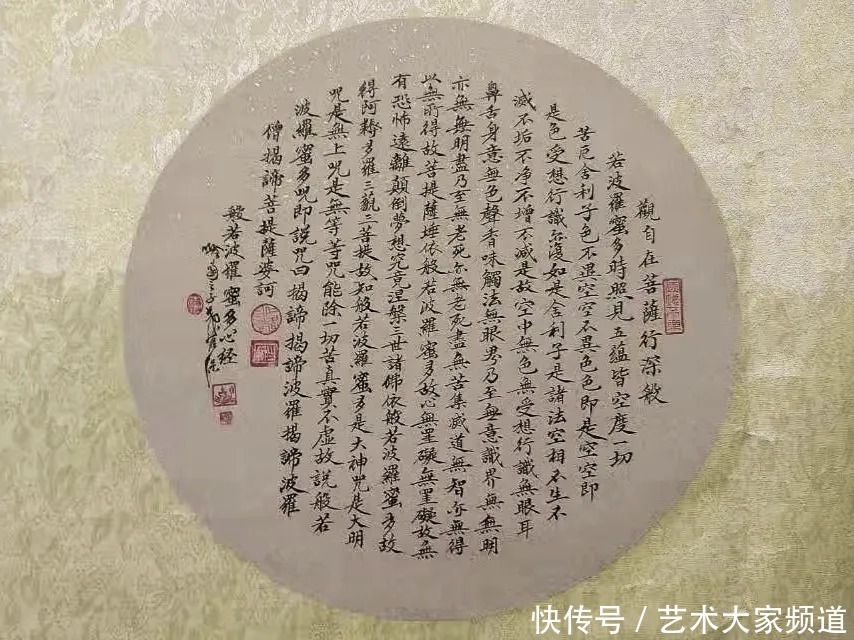 觀自在菩薩行深般
若波羅蜜多時照見五蘊皆空度一切
苦厄舍利子色不異空空不異色色即是空空即
是色受想行識亦復如是舍利子是諸法空相不生不
滅不垢不净不增不減是故空中無色無受想行識無眼耳
鼻舌身意無色聲香味觸法無眼界乃至無意識界無無明
亦無無明盡乃至無老死亦無老死盡無苦集滅道無智亦無得
以無所得故菩提薩埵依般若波羅蜜多故心無罣礙無罣礙故無
有恐怖遠離顛倒夢想究竟涅槃三世諸佛依般若波羅蜜多故
得阿耨多羅三藐三菩提故知般若波羅蜜多是大神咒是大明
咒是無上咒是無等等咒能除一切苦真實不虛故說般若
波羅蜜多咒即說咒曰揭諦揭諦波羅揭諦波羅
僧揭諦菩提薩婆訶
般若波羅蜜多心經
快传号/艺术大家频道